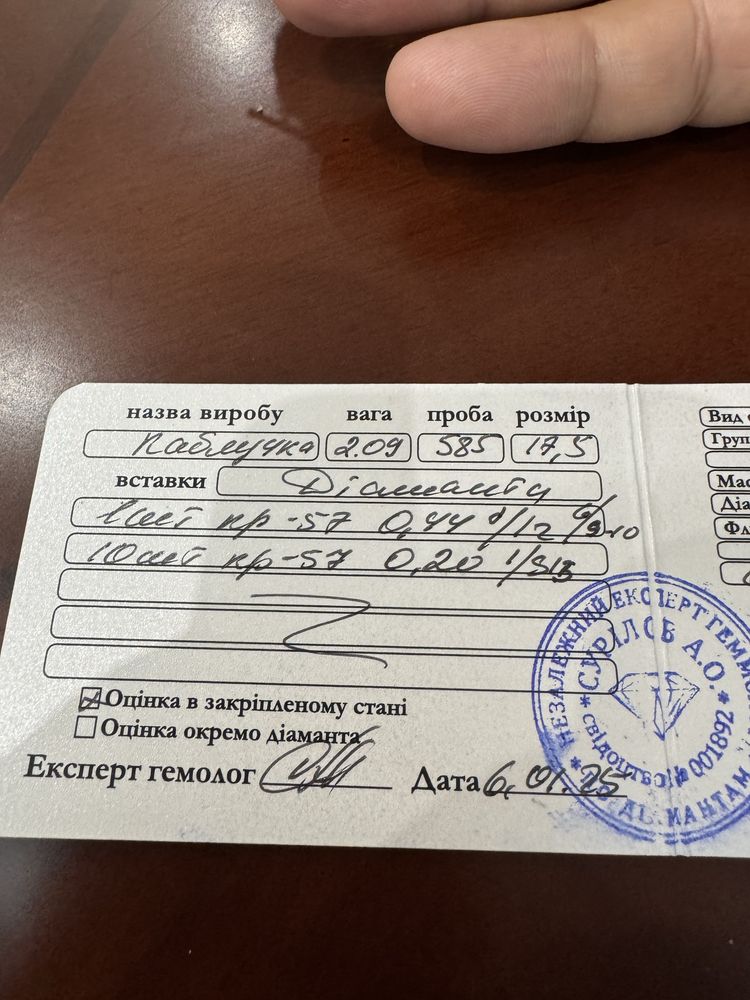 назва виробу вага проба розмір
Каблучка 2.09 585 17,5
вставки Діаманти
1 шт кр-57 0,44
10 шт кр-57 0,20
Оцінка в закріпленому стані
Оцінка окремо діаманта
Експерт гемолог Дата 6.01.25
Вид
Груп
Мас
Діа
НЕЗАЛЕЖНИЙ ЕКСПЕРТ
СУРІЛОВ А.О.
СВІДОЦТВО № 001892